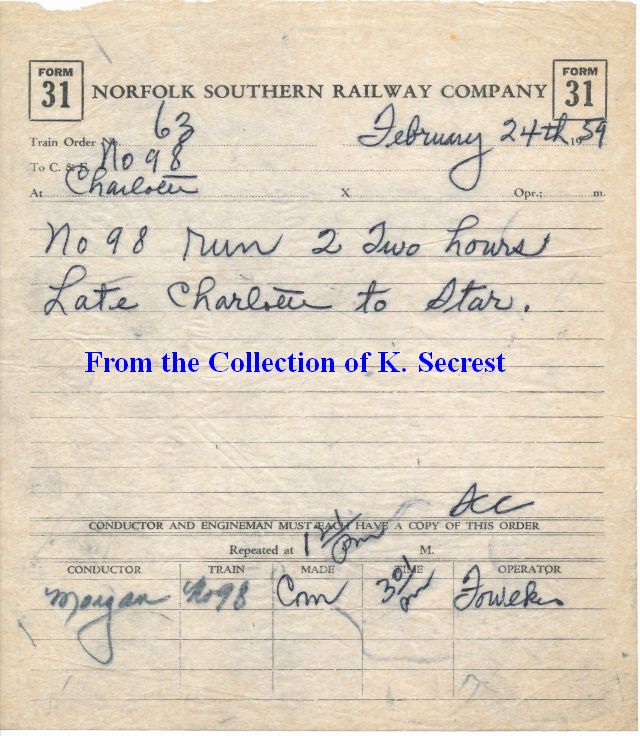 FORM 31 NORFOLK SOUTHERN RAILWAY COMPANY FORM 31
Train Order No. 63 February 24th 1959
To C. & E. No 98
At Charlotte X Opr.; m.
No 98 run 2 Two hours
Late Charlotte to Star.
From the Collection of K. Secrest
CONDUCTOR AND ENGINEMAN MUST EACH HAVE A COPY OF THIS ORDER
Repeated at pm M.
CONDUCTOR TRAIN MADE TIME OPERATOR
Morgan No 98 Com 301 pm